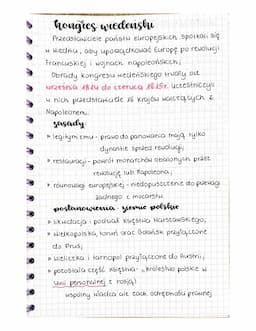 Kongres wiedeński
Przedstawiciele państw europejskich spotkali się
w Wiedniu, aby uporządkować Europę po rewolucji
Francuskiej i wojnach napoleońskich;
Obrady kongresu wiedeńskiego trwały od
września 1814 do czerwca 1815r. uczestniczyli
w nich przedstawiciele 16 krajów walczących z
Napoleonem.
zasady:
legitymizmu - prawo do panowania mają tylko
dynastie sprzed rewolucji;
restauracji - powrót monarchów obalonych przez
rewolucję lub Napoleona;
równowagi europejskiej - niedopuszczenie do przewagi
żadnego z mocarstw.
postanowienia - ziemie polskie
likwidacja i podział Księstwa Warszawskiego;
wielkopolska, toruń oraz Gdańsk przyłączone
do Prus;
wieliczka i tarnopol przyłączone do Austrii;
pozostała część Księstwa - „królestwo polskie w
unii personalnej z rosją)
wspólny władca ale zach. odrębności prawnej